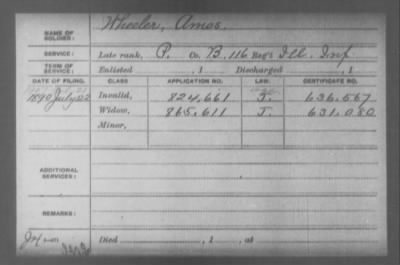 NAME OF SOLDIER: Wheeler, Amos.
SERVICE: Late rank, P. Co. B, 116 Reg't Ill. Inf
TERM OF SERVICE: Enlisted , 1 Discharged , 1
DATE OF FILING. CLASS. APPLICATION NO. LAW. CERTIFICATE NO.
1890 July 22 Invalid, 824,661 J. 636.567
Widow, 865,611 J. 631.080
Minor,
ADDITIONAL SERVICES:
REMARKS:
Died , 1 , at